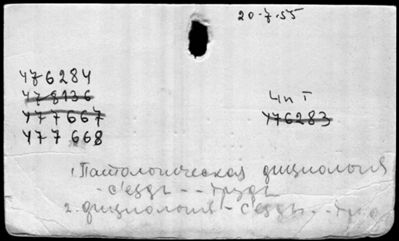 20-7-55
476284
478136
477667
477668
Ц п I
476283
1. Патологическая физиология
- съезды - - труды
2. физиология - съезды - - тру